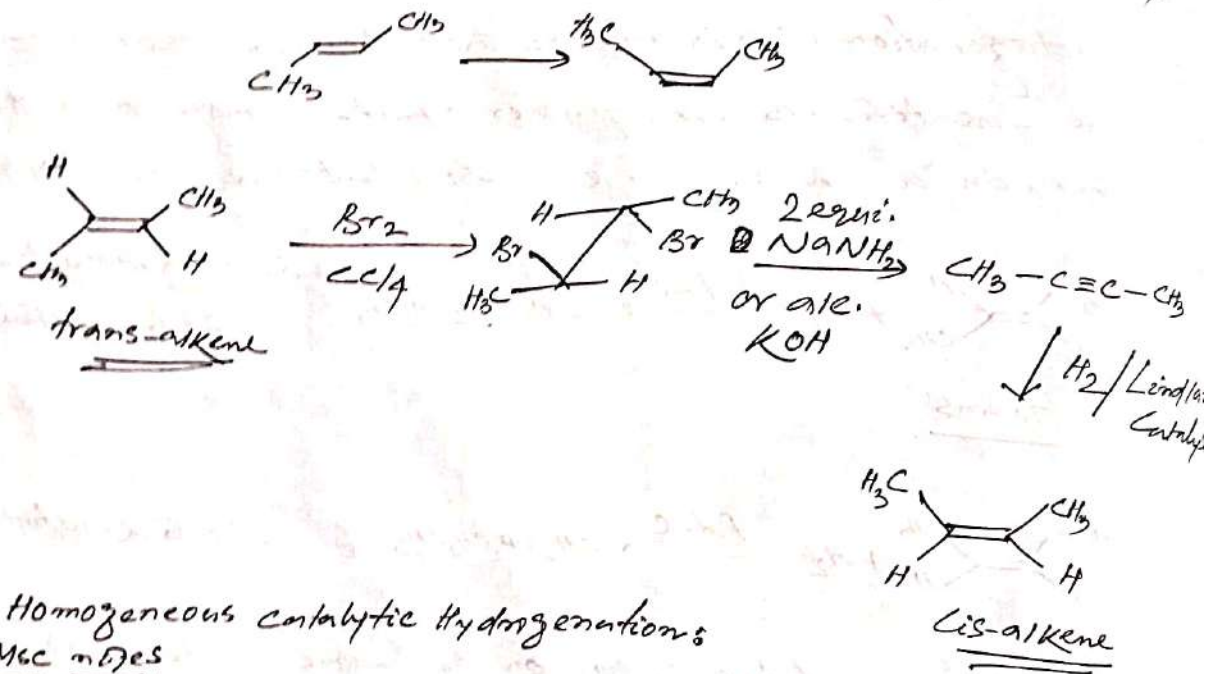 CH3
CH3
H3C
CH3
H
CH3
CH3
H
trans-alkene
Br2
CCl4
H
CH3
Br
Br
H3C
H
2 equi.
NaNH2
or alc.
KOH
CH3-C≡C-CH3
H2/Lindla
Cataly
H3C
CH3
H
H
Cis-alkene
Homogeneous Catalytic Hydrogenation:
MSC notes